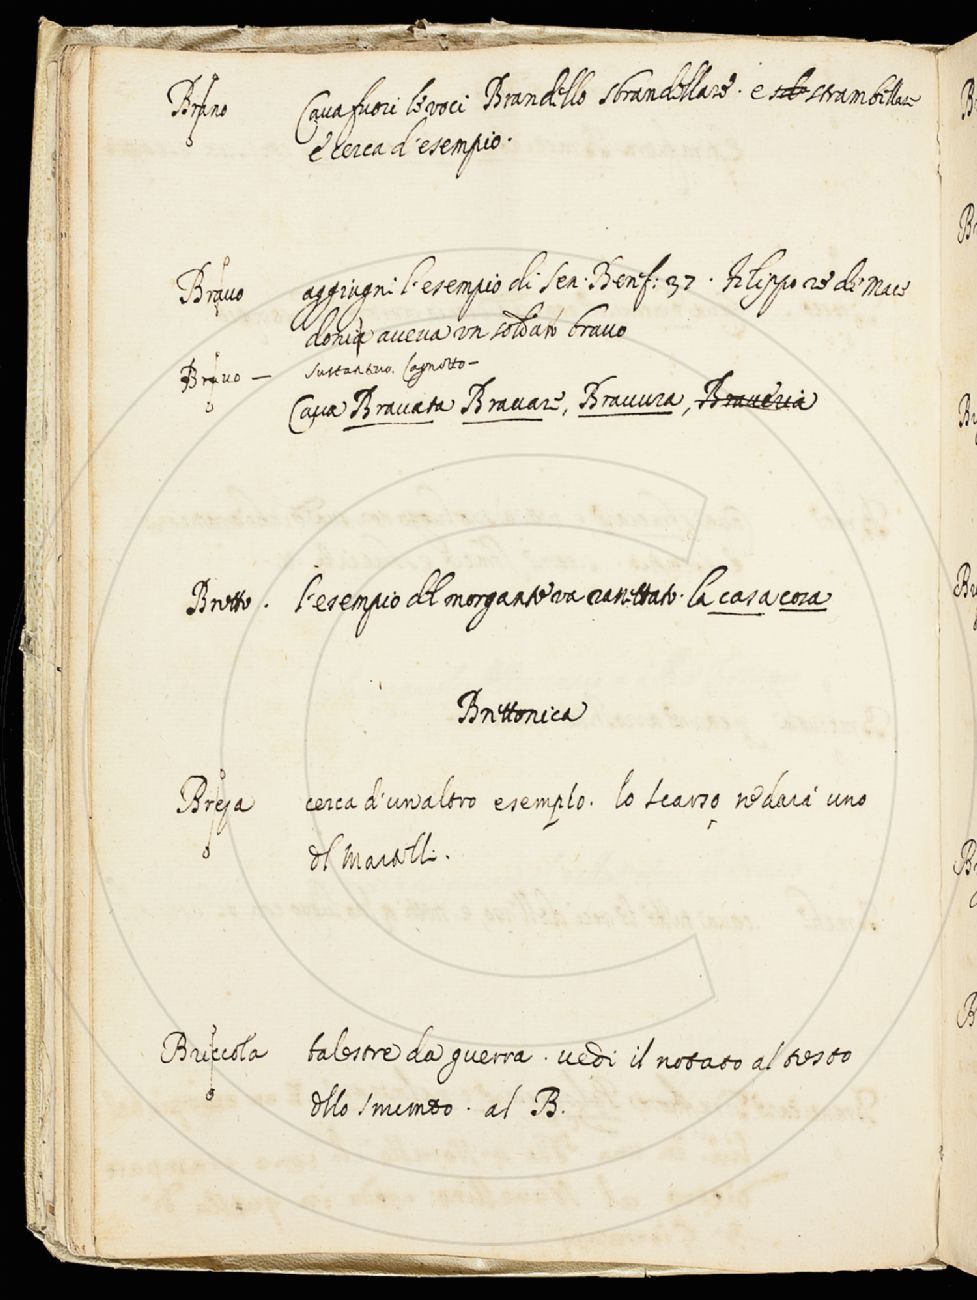 Brano Cava fuori le voci Brandello sbrandellare. e strambellare
e cerca d'esempio.
Bravo aggiugni l'esempio di Sen. Benef: 37. Filippo re di Mace
donia aveva un soldato bravo
Bravo — sustantivo. Cagnotto —
Cava Bravata Bravare, Bravura, Braveria
Bretto. l'esempio del morgante va rassettato. la casa cosa
Brettonica
cerca d'un altro esemplo. lo scarso ne darà uno
del Martelli.
Briccola balestre da guerra. vedi il notato al testo
dello al B.